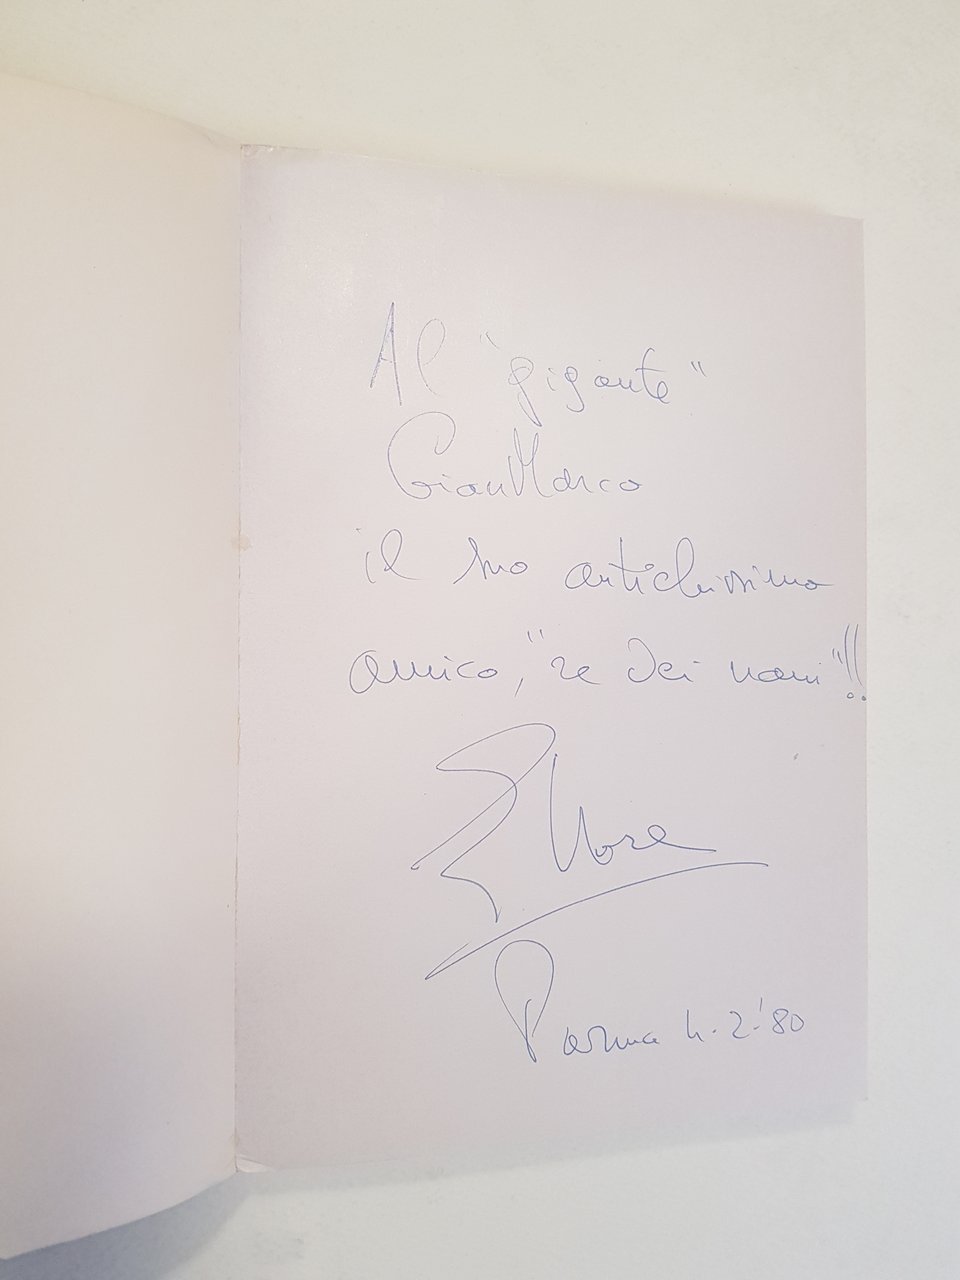 Al "gigante"
GianMarco
il suo antichissimo
amico, "re dei nani"!!
Ettore
Parma 4.2.'80